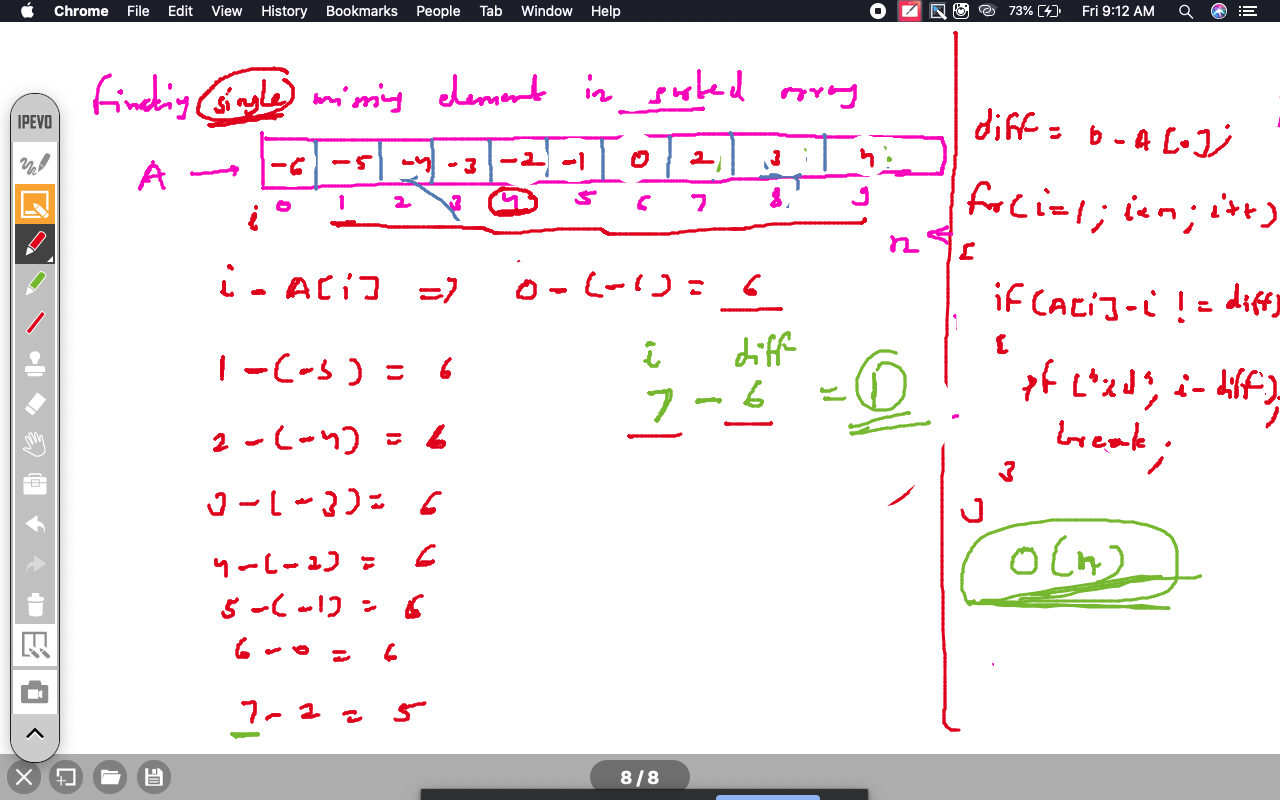 Chrome File Edit View History Bookmarks People Tab Window Help 73% Fri 9:12 AM
IPEVO
finding single missing element in sorted array
A → -6 -5 -4 -3 -2 -1 0 2 3 4
i 0 1 2 3 4 5 6 7 8 9
n
i - A[i] => 0 - (-6) = 6
1 - (-5) = 6
2 - (-4) = 6
3 - (-3) = 6
4 - (-2) = 6
5 - (-1) = 6
6 - 0 = 6
7 - 2 = 5
i diff
7 - 6 = 1
diff = 0 - A[0];
for(i=1; i<n; i++)
{
if(A[i]-i != diff)
{
pf("%d", i-diff);
break;
}
}
O(n)
8 / 8